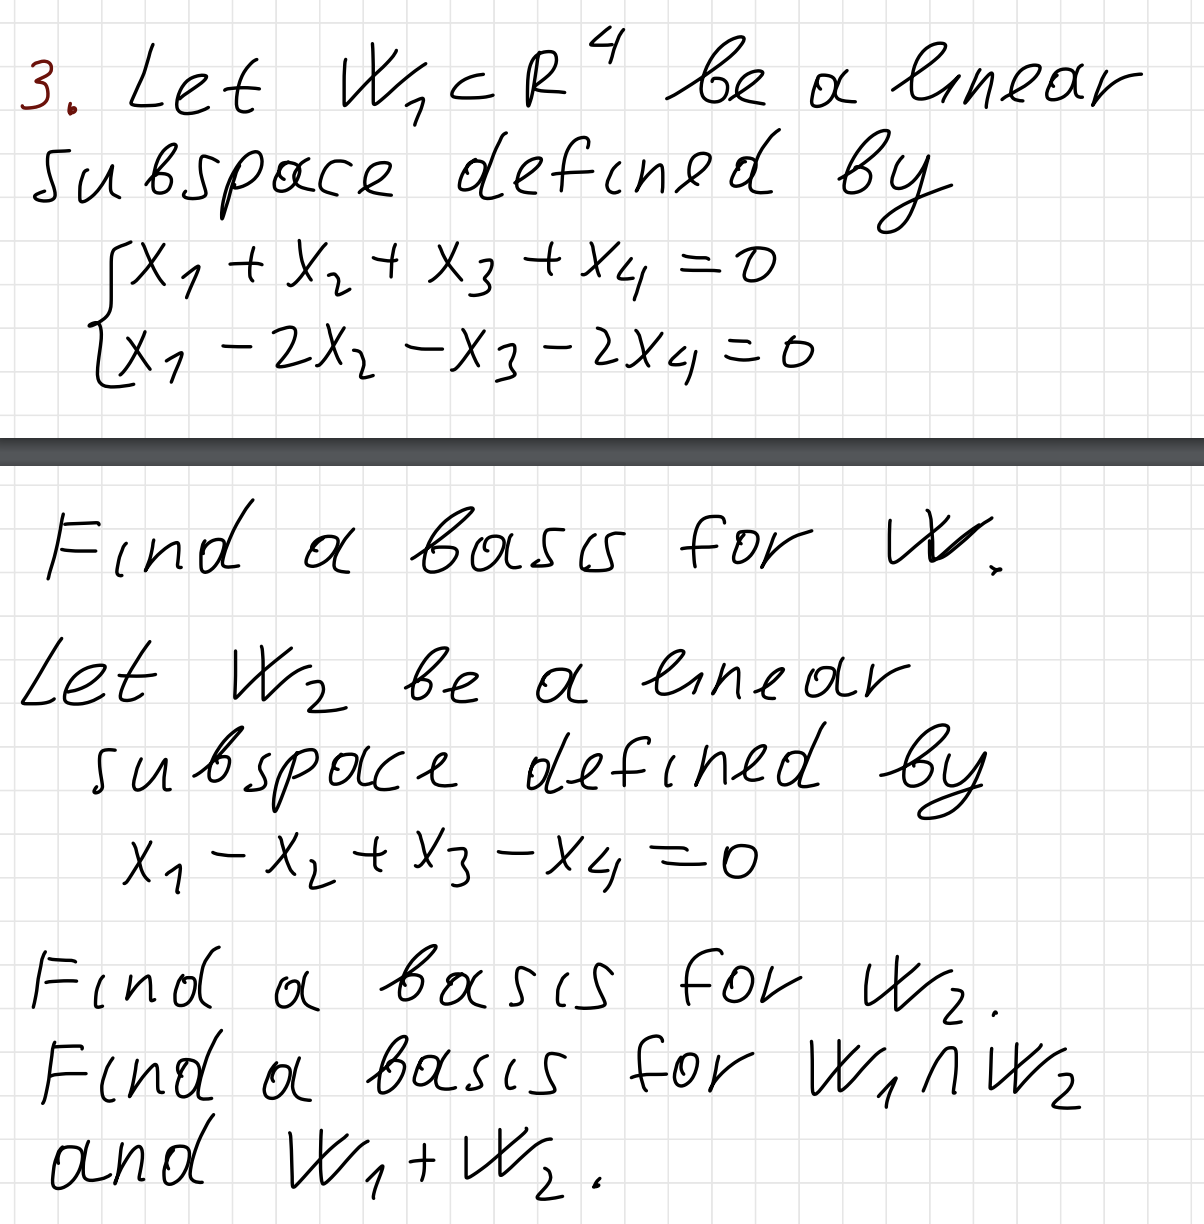 3. Let W₁ ⊂ R⁴ be a linear
subspace defined by
x₁ + x₂ + x₃ + x₄ = 0
x₁ - 2x₂ - x₃ - 2x₄ = 0
Find a basis for W.
Let W₂ be a linear
subspace defined by
x₁ - x₂ + x₃ - x₄ = 0
Find a basis for W₂.
Find a basis for W₁ ∩ W₂
and W₁ + W₂.